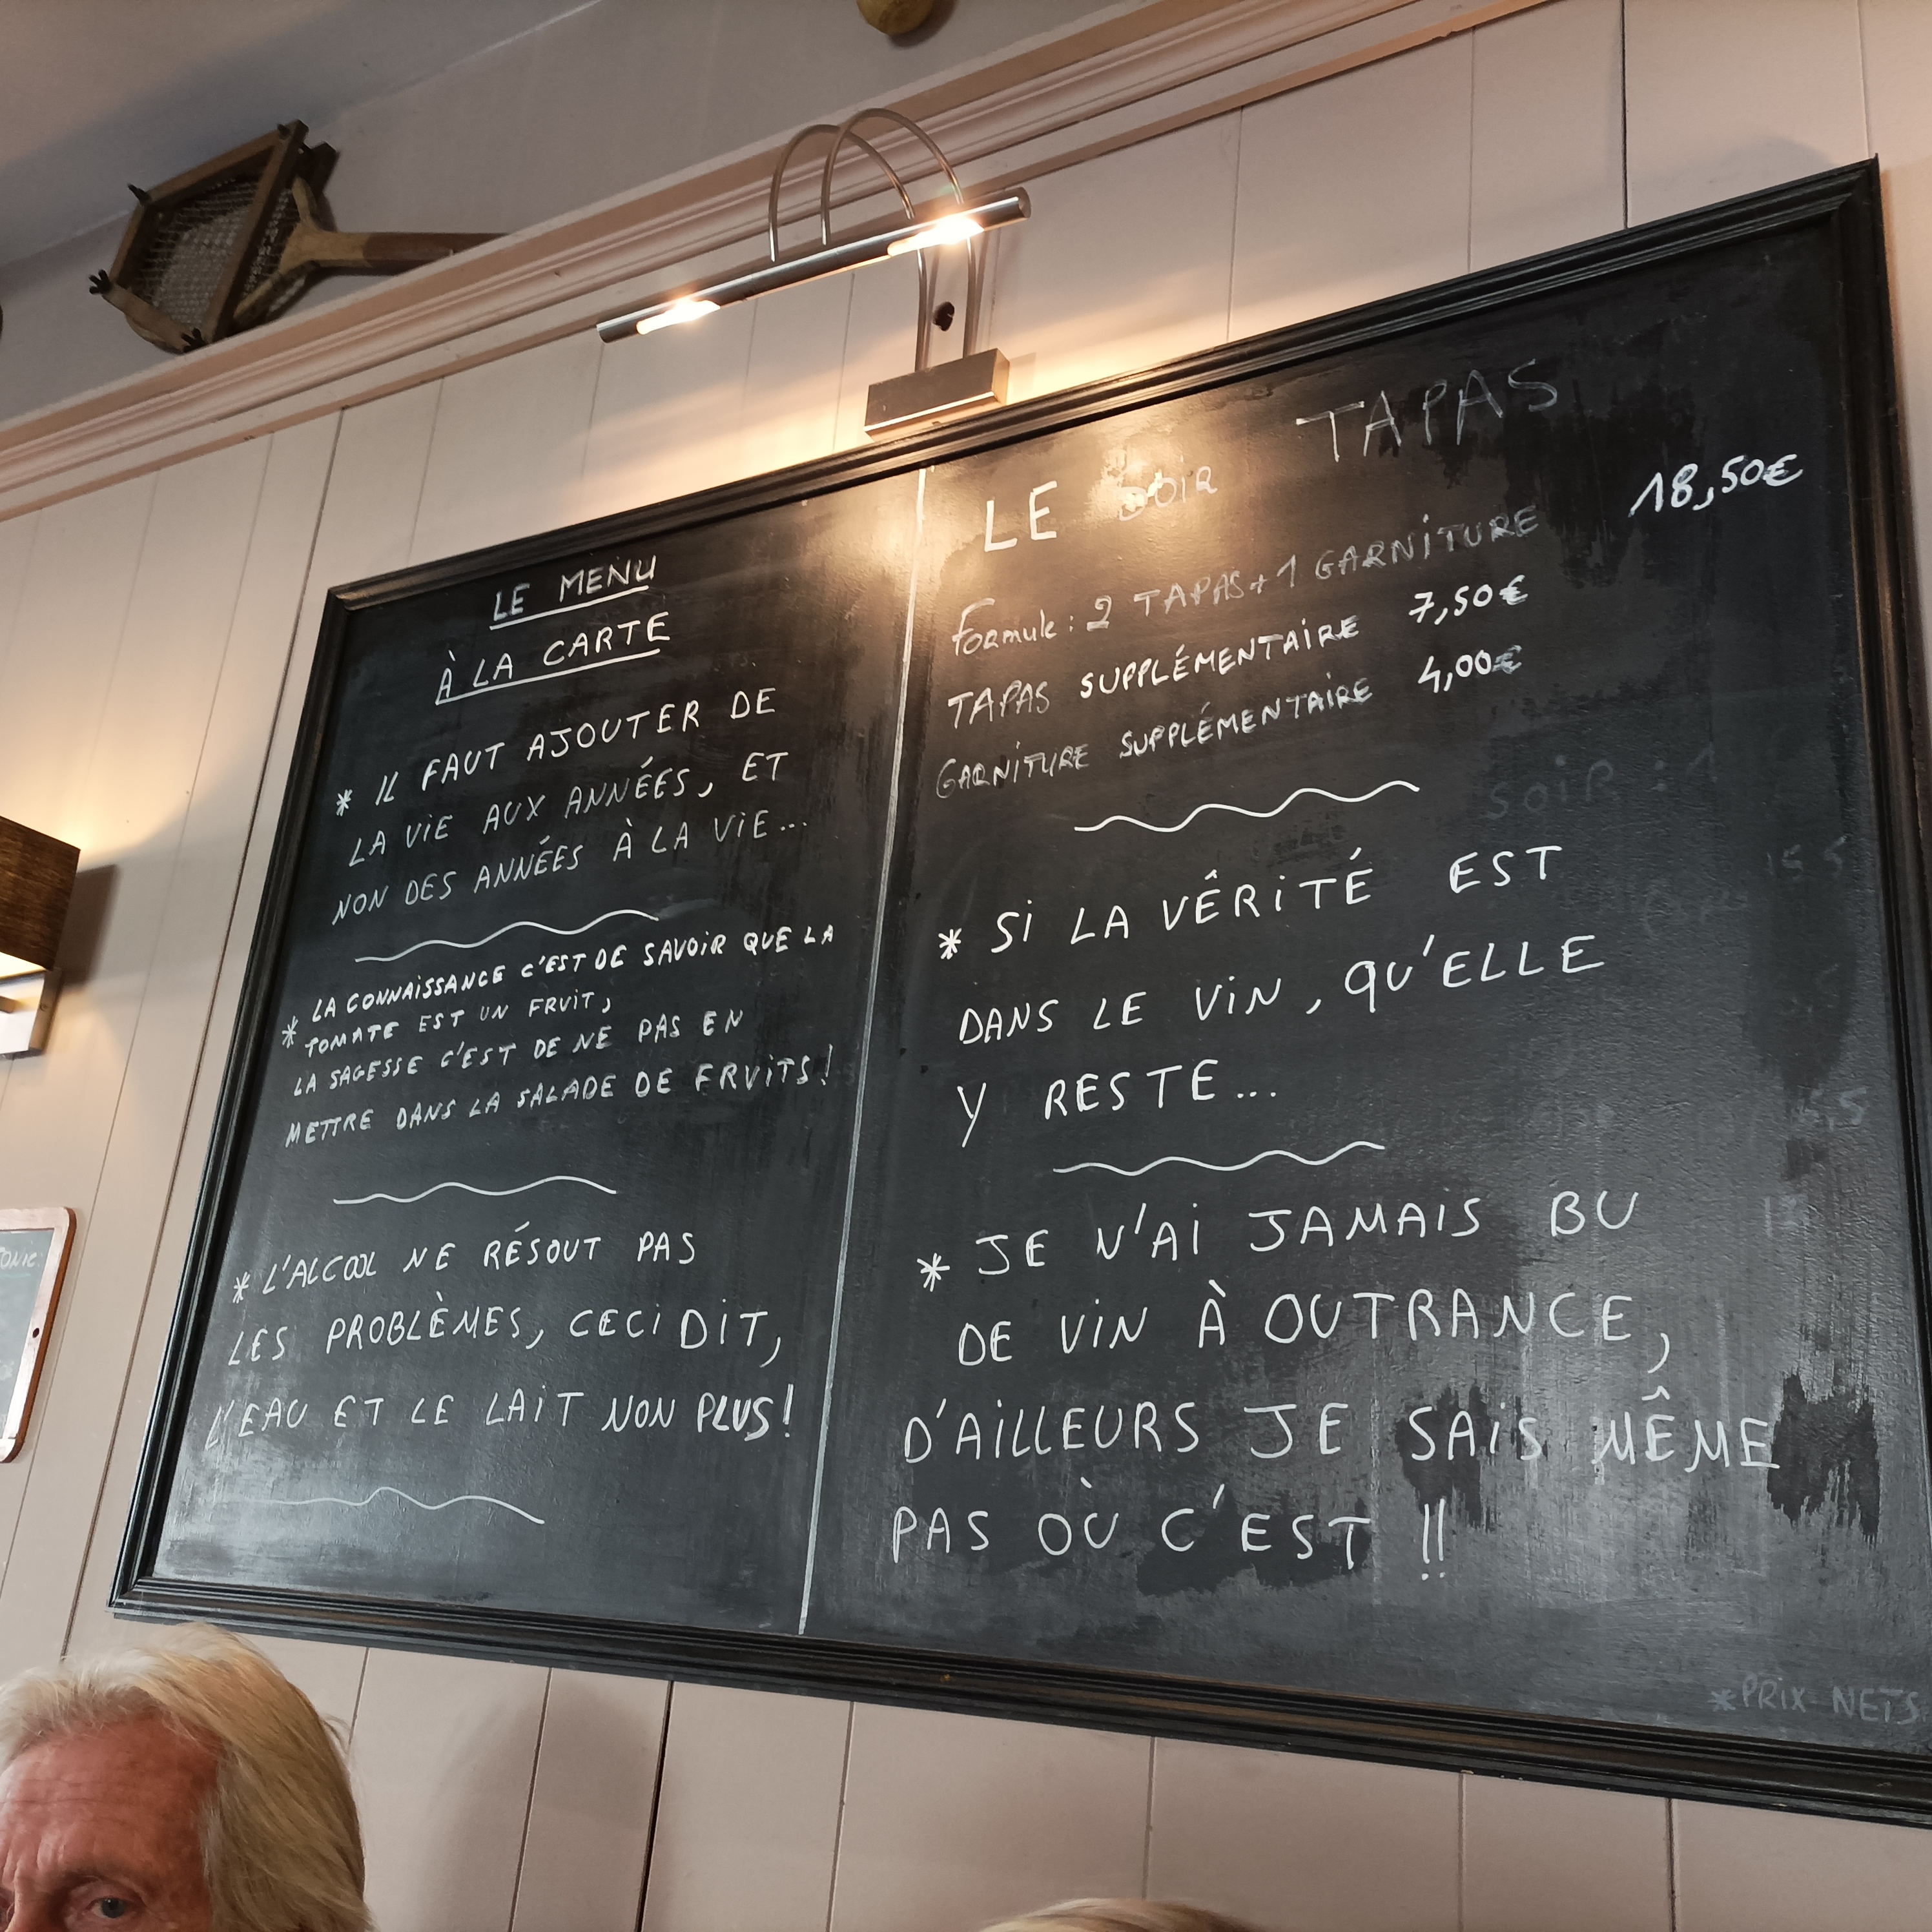 LE MENU
À LA CARTE
* IL FAUT AJOUTER DE
LA ViE AUX ANNÉES, ET
NON DES ANNÉES À LA ViE...
LA CONNAiSSANCE C'EST DE SAVOiR QUE LA
* TOMATE EST UN FRUiT,
LA SAGESSE C'EST DE NE PAS EN
METTRE DANS LA SALADE DE FRUiTS!
* L'ALCOOL NE RÉSOUT PAS
LES PROBLÈMES, CECi DiT,
L'EAU ET LE LAiT NON PLUS!
LE SOiR TAPAS
Formule: 2 TAPAS + 1 GARNiTURE 18,50€
TAPAS SUPPLÉMENTAiRE 7,50€
GARNiTURE SUPPLÉMENTAiRE 4,00€
SOiR :
* Si LA VÊRiTÉ EST
DANS LE ViN, QU'ELLE
Y RESTE...
* JE N'Ai JAMAiS BU
DE ViN À OUTRANCE,
D'AiLLEURS JE SAiS MÊME
PAS OÙ C'EST !!
*PRiX NETS